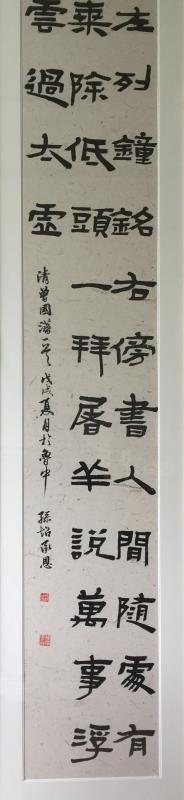 左列鐘銘右傍書人間隨處有
乘除低頭一拜屠羊說萬事浮
雲過太虛
清曾國藩 戊戌夏月於魯中 孫